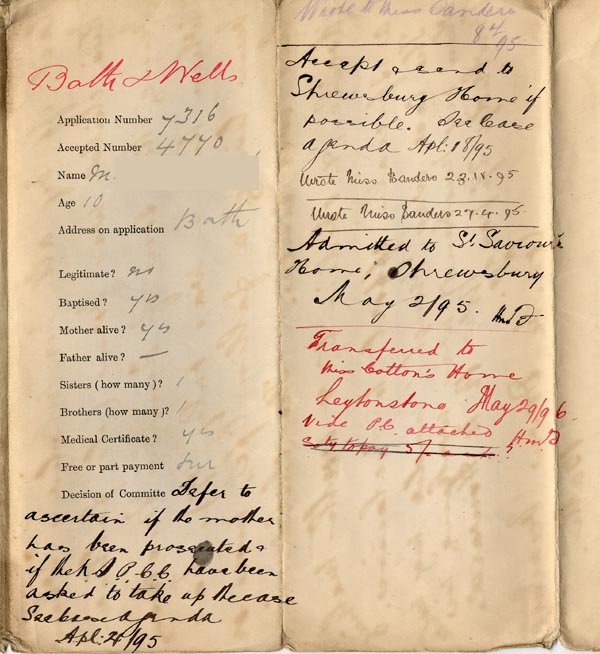 Bath & Wells
Application Number 7316
Accepted Number 4770
Name M.
Age 10
Address on application Bath
Legitimate? no
Baptised? yes
Mother alive? yes
Father alive? —
Sisters (how many)? 1
Brothers (how many)? 1
Medical Certificate? yes
Free or part payment
Decision of Committee Defer to
ascertain if the mother
has been prosecuted &
if the N.S.P.C.C. have been
asked to take up the case
See case agenda
Apl: 4/95
Wrote to Miss Sanders
8/4/95
Accept & send to
Shrewsbury Home if
possible. See Case
agenda Apl: 18/95
Wrote Miss Sanders 23.IV.95
Wrote Miss Sanders 27.4.95
Admitted to St. Saviour's
Home, Shrewsbury
May 2/95.
Transferred to
Miss Cotton's Home
Leytonstone May 29/96.
Vide P.C. attached
to pay 5/-